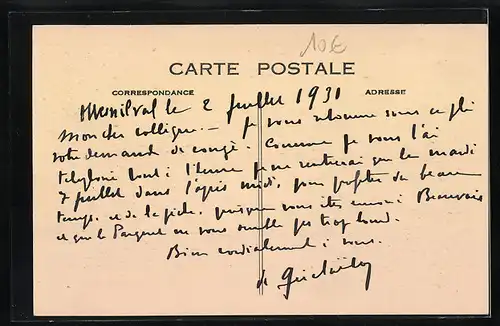 10€
CARTE POSTALE
CORRESPONDANCE
ADRESSE
Mesnilval le 2 Juillet 1931
Mon cher collègue. — Je vous retourne sous ce pli
votre demande de congé. Comme je vous l'ai
téléphoné tout à l'heure je ne rentrerai que le mardi
7 juillet dans l'après midi, pour profiter du beau
temps et de la pêche, puisque vous êtes à Beauvais
et que le Parquet ne vous semble pas trop lourd.
Bien cordialement à vous.